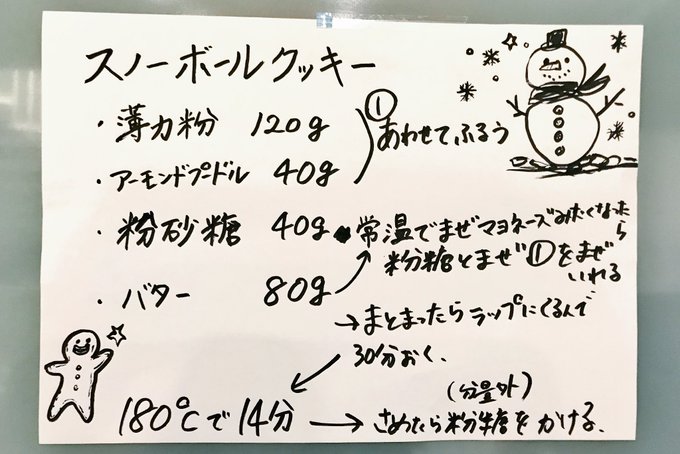 スノーボールクッキー
・薄力粉 120g
・アーモンドプードル 40g
①あわせてふるう
・粉砂糖 40g
・バター 80g
常温でまぜマヨネーズみたくなったら
粉糖とまぜ①をまぜ
いれる
→まとまったらラップにくるんで
30分おく、
180℃で14分 →
(分量外)
さめたら粉糖をかける、